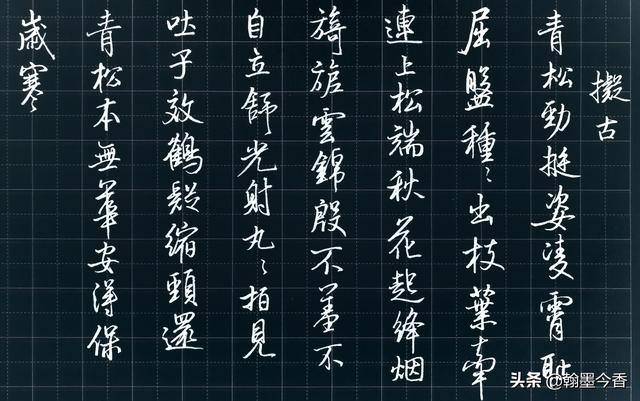 擬古
青松勁挺姿凌霄恥
屈盤種〻出枝葉牽
連上松端秋花起絳烟
旖旎雲錦殷不羞不
自立舒光射丸〻柏見
吐子效鶴疑縮頸還
青松本無華安得保
歲寒
头条@翰墨今香